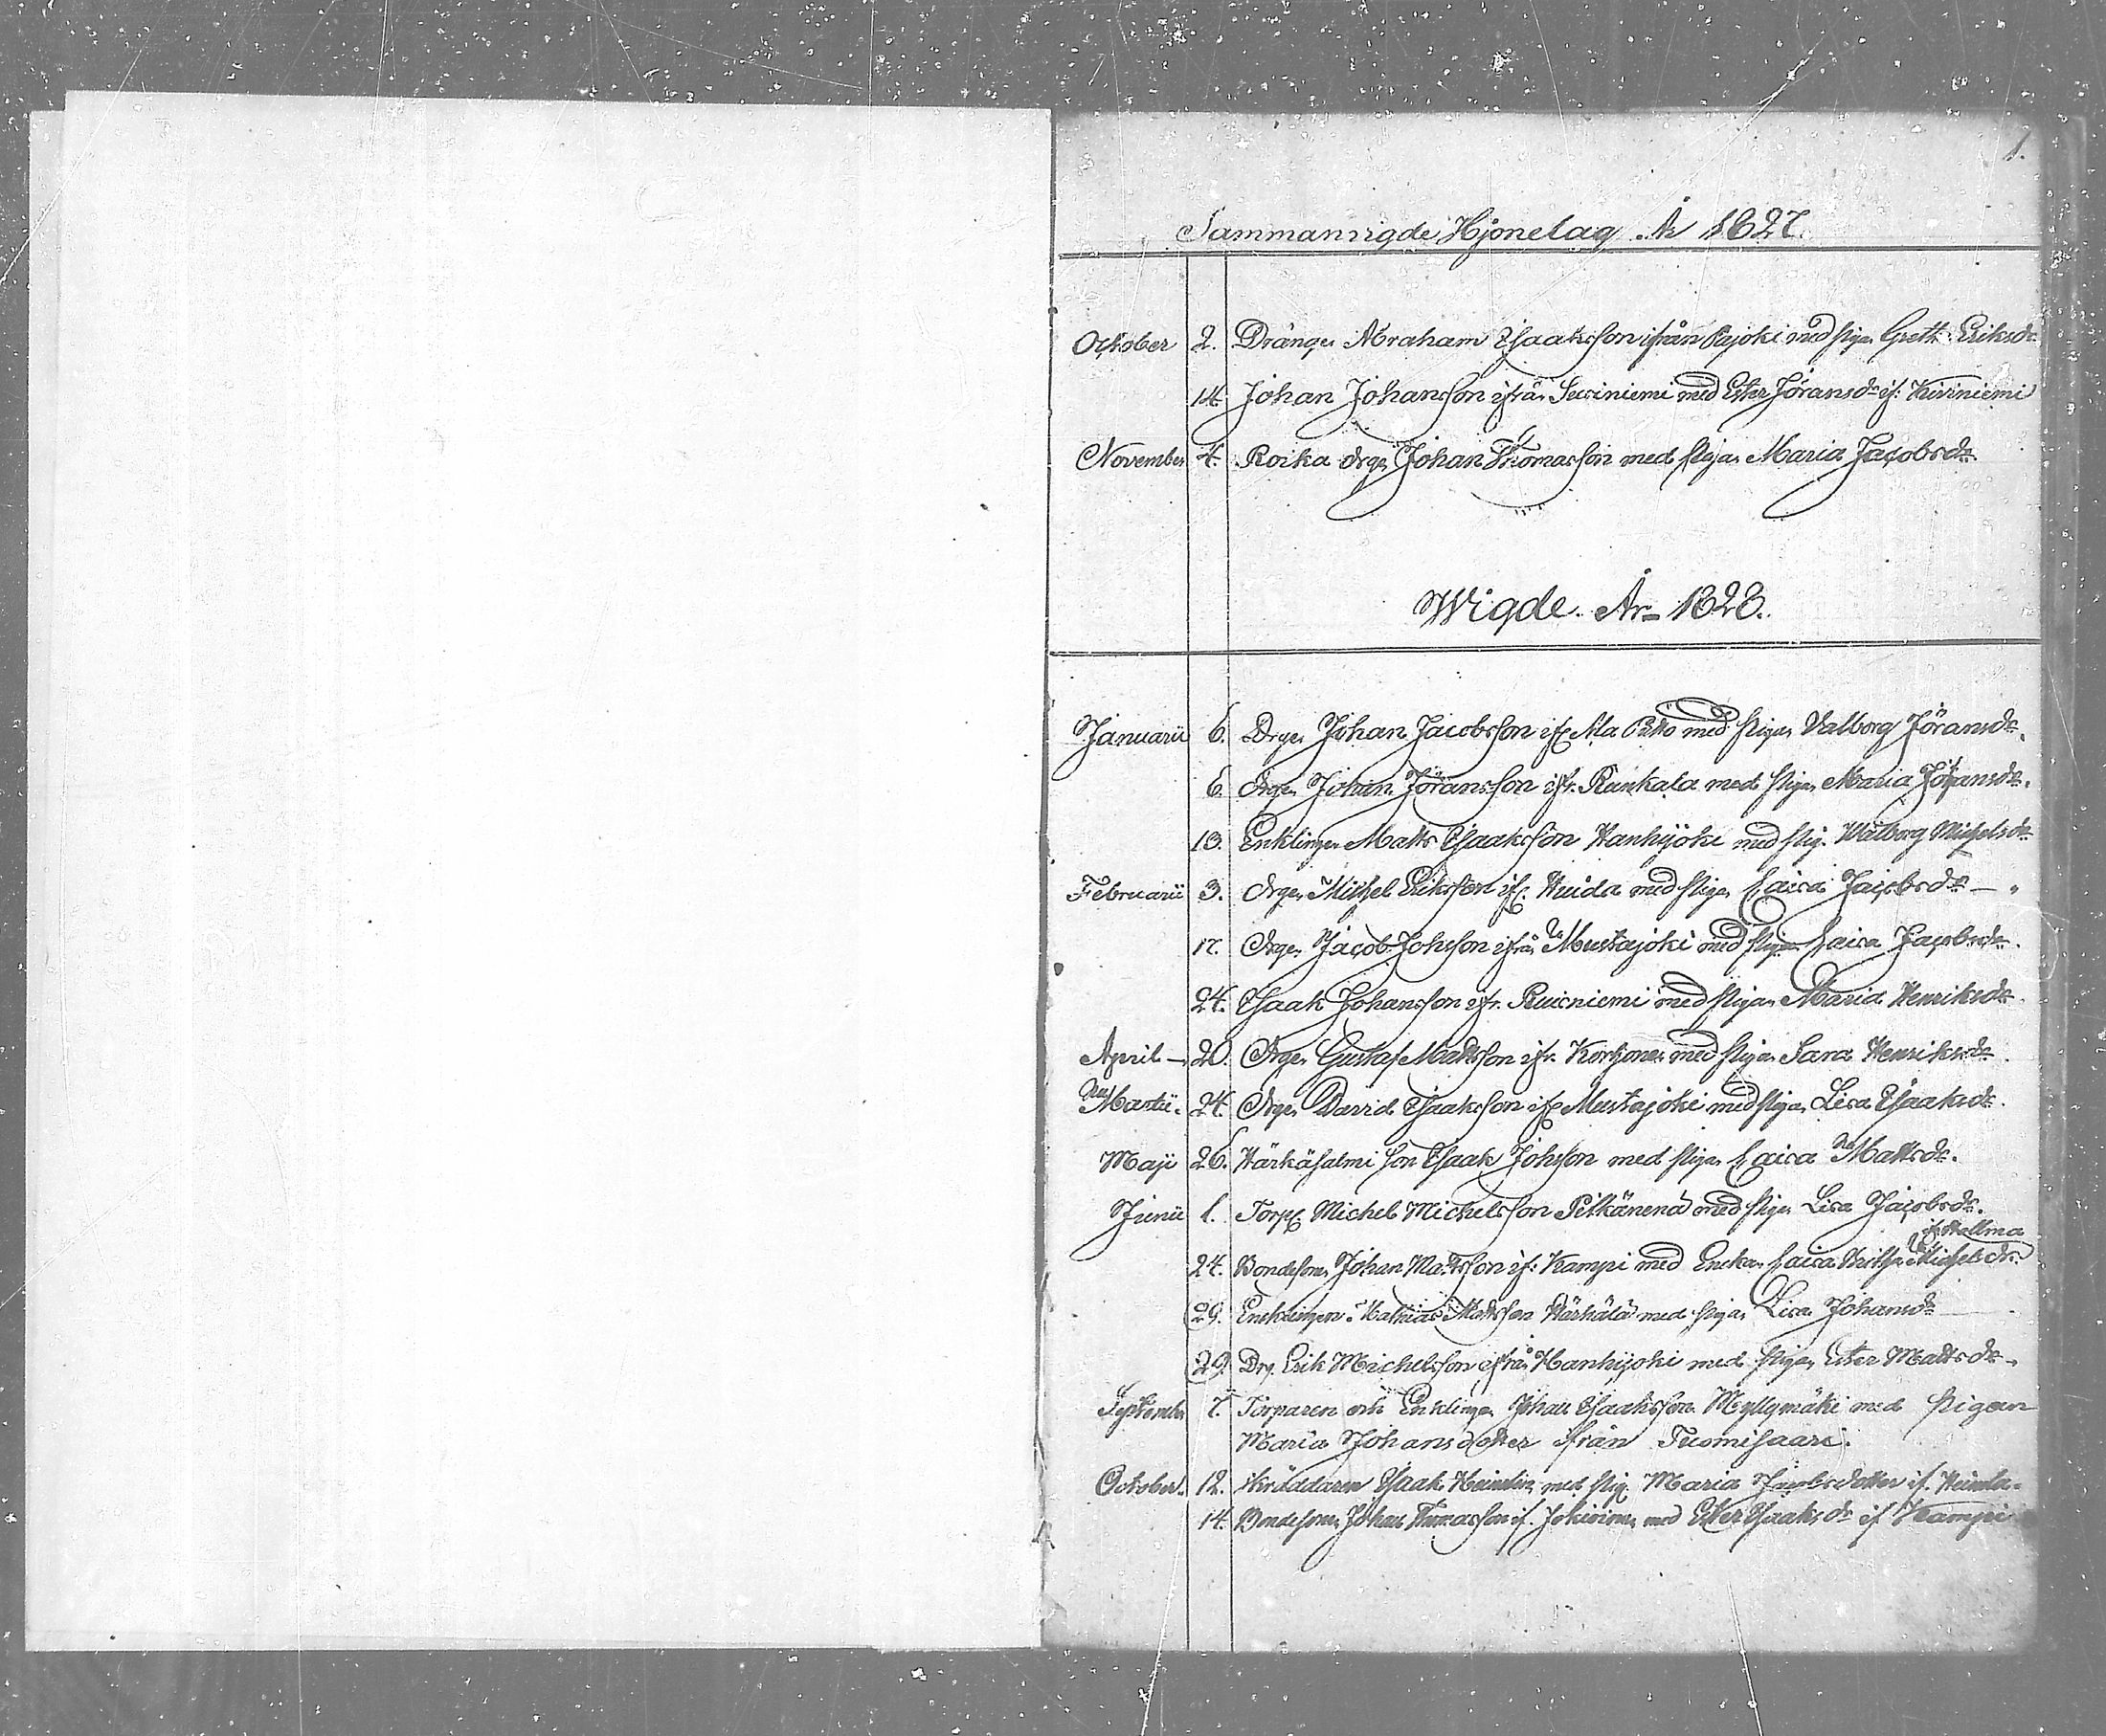 1.
Sammanvigde Hjonelag År 1827.
October 2. Drängen Abraham Isaaksson ifrån Pajoki med pigan Greth. Eriksdr
14. Johan Johansson ifrån Susiniemi med Ester Jöransdr if: Kiviniemi
November 4. Roika drgn Johan Thomasson med pigan Maria Jacobsdr
Wigde År 1828.
Januarii 6. Drgn Johan Jacobsson ifr Ala med pigan Valborg Jöransdr.
6. drgn Johan Jöransson ifr. Rankala med pigan Maria Jöransdr.
13. Enklingen Matts Isaaksson Hanhijoki med pig. Walborg Michelsdr
Februarii 3. drgn Michel Eriksson ifr. Huida med pigan Caisa Jacobsdr —
17. drgn Jacob Johsson ifrån Mustajoki med pigan Caisa Jacobsdr.
24. Isaak Johansson ifr. Ruisniemi med pigan Maria Henriksdr.
April — 20. drgn Gustaf Mattsson ifr. Korhonen med pigan Sara Henriksdr.
Martii. 24. drgn David Isaaksson ifr Mustajoki med pigan Lisa Isaaksdr.
Maji 26. Härkäsalmi son Isaak Johsson med pigan Caisa Mattsdr.
Junii 1. Torp Michel Michelsson Pitkänenä med pigan Lisa Jacobsdr.
24. Bondesonen Johan Mattsson if: Kampi med Enckan Caisa Michelsdr.
29. Encklingen Mathias Mattsson Härkälä med pigan Lisa Johansdr
29. Drg. Erik Michelsson ifrån Hanhijoki med pigan Ester Mattsdr.
Septembr 7. Torparen och Enklingen Johan Isaaksson Myllymäki med Pigan
Maria Johansdotter ifrån Tuomisaari.
October. 12. Skräddaren Isaak Heimlin med pig. Maria Jacobsdotter if. Heimla.
14. Bondesonen Johan Thomasson if. med Ester Isaaksdr if Kampi